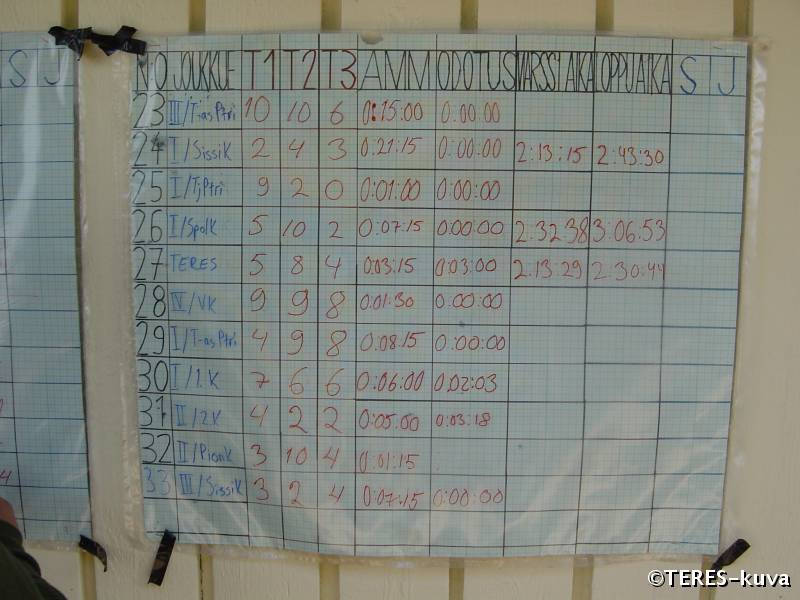 S J
NO JOUKKUE T1 T2 T3 AMM ODOTUS VARSSI AIKA LOPPUAIKA S J
23 III/T-as Ptri 10 10 6 0:15:00 0:00:00
24 I/SissiK 2 4 3 0:21:15 0:00:00 2:13:15 2:43:30
25 I/TjPtri 9 2 0 0:01:00 0:00:00
26 I/SpolK 5 10 2 0:07:15 0:00:00 2:32:38 3:06:53
27 TERES 5 8 4 0:03:15 0:03:00 2:13:29 2:30:44
28 IV/VK 9 9 8 0:01:30 0:00:00
29 I/T-as Ptri 4 9 8 0:08:15 0:00:00
30 I/1.K 7 6 6 0:06:00 0:02:03
31 II/2K 4 2 2 0:05:00 0:03:18
32 II/PionK 3 10 4 0:01:15
33 III/SissiK 3 2 4 0:07:15 0:00:00
©TERES-kuva